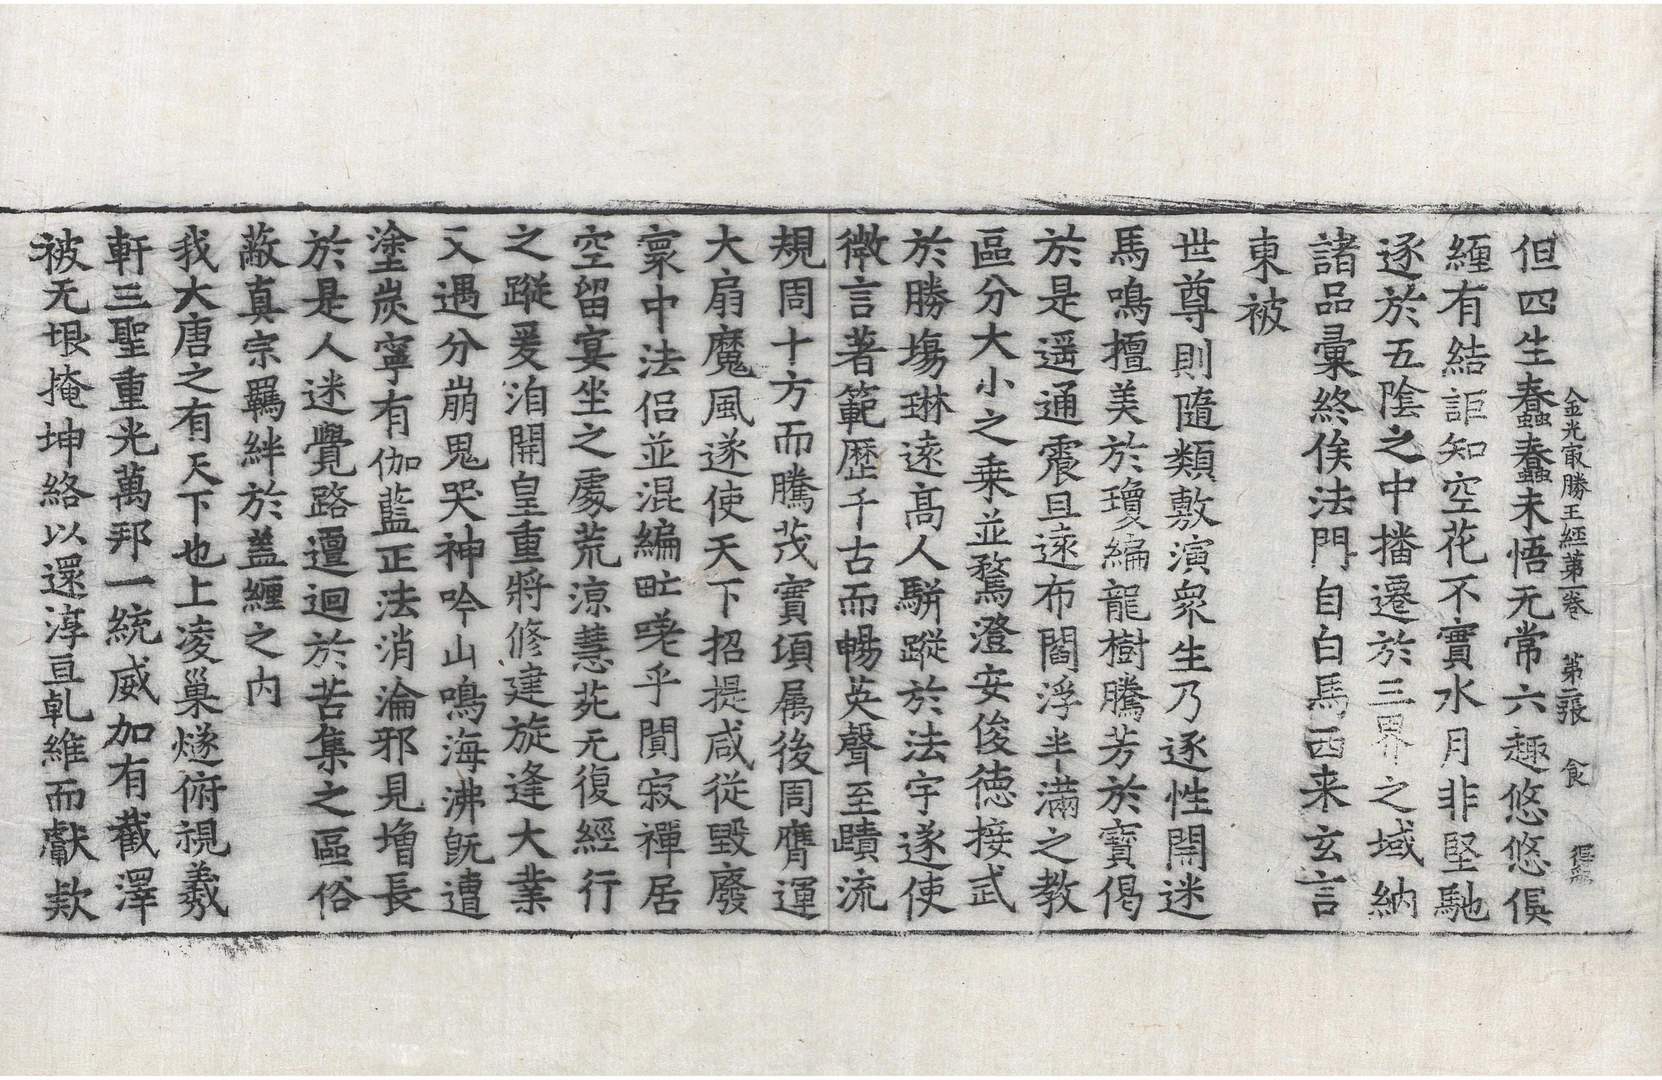 金光㝡勝王經第一卷 第二張 食
但四生蠢蠢未悟无常六趣悠悠俱
纏有結詎知空花不實水月非堅馳
逐於五陰之中播遷於三界之域納
諸品彙終俟法門自白馬西来玄言
東被
世尊則隨類敷演衆生乃逐性開迷
馬鳴擅美於瓊編龍樹騰芳於寳偈
於是遥通震旦遠布閻浮半滿之教
區分大小之乗並騖澄安俊德接武
於勝場琳遠髙人駢蹤於法宇遂使
微言著範歷千古而暢英聲至賾流
規周十方而騰茂實項屬後周膺運
大扇魔風遂使天下招提咸從毀廢
寰中法侶並混編甿嗟乎闃寂禪居
空留宴坐之處荒涼慧苑无復經行
之蹤爰洎開皇重將修建旋逢大業
又遇分崩鬼哭神吟山鳴海沸旣遭
塗炭寧有伽藍正法消淪邪見增長
於是人迷覺路邅迴於苦集之區俗
蔽真宗羈絆於盖纏之内
我大唐之有天下也上凌巢燧俯視羲
軒三聖重光萬邦一統威加有截澤
被无垠掩坤絡以還淳亘乹維而獻款